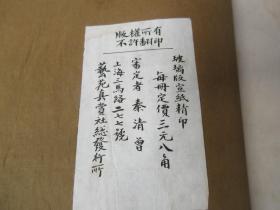 版權所有
不許翻印
玻璃版宣紙精印
每冊定價三元八角
審定者 秦清曾
上海三馬路二七七號
藝苑真賞社總發行所